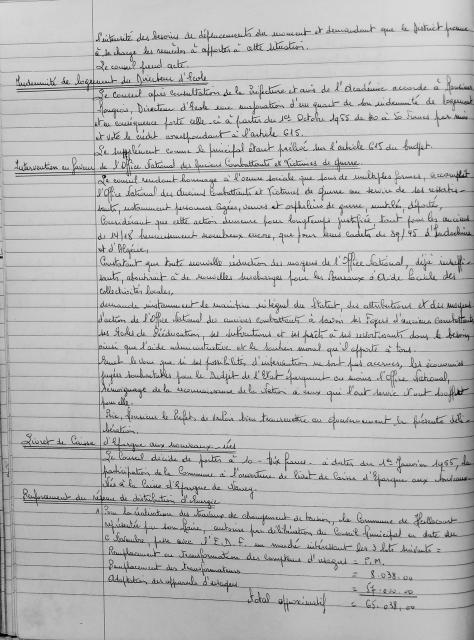 l'intensité des besoins de déplacements du moment et demandant que le District prenne
à sa charge les remèdes à apporter à cette situation.
Le conseil prend acte.
Indemnité de logement du Directeur d'École
Le Conseil après consultation de la Préfecture et avis de l'Académie accorde à Monsieur
Directeur d'École une majoration d'un quart de son indemnité de logement
et en conséquence porte celle-ci à partir du 1er Octobre 1955 de 40 à 50 francs par mois
et vote le crédit correspondant à l'article 615.
Le supplément comme le principal étant prélevé sur l'article 615 du budget.
Intervention en faveur de l'Office National des Anciens Combattants et Victimes de guerre.
Le conseil rendant hommage à l'œuvre sociale que sous de multiples formes, accomplit
l'Office National des Anciens Combattants et Victimes de Guerre au service de ses ressortis-
sants, notamment personnes âgées, veuves et orphelins de guerre, mutilés, déportés,
Considérant que cette action demeure pour longtemps justifiée tant pour les anciens
de 14/18 heureusement nombreux encore, que pour leurs cadets de 39/45 d'Indochine
et d'Algérie,
Constatant que toute nouvelle réduction des moyens de l'Office National, déjà insuffi-
sants, aboutirait à de nouvelles surcharges pour les Bureaux d'Aide Sociale des
collectivités locales,
demande instamment le maintien intégral du Statut, des attributions et des moyens
d'action de l'Office National des anciens combattants à savoir ses Foyers d'anciens combattants,
ses Écoles de Rééducation, ses subventions et ses prêts à ses ressortissants dans le besoin
ainsi que l'aide administrative et le soutien moral qu'il apporte à tous.
Émet le vœu que si ses possibilités d'intervention ne sont pas accrues, les économies
jugées souhaitables pour le Budget de l'État épargnent au moins l'Office National,
témoignage de la reconnaissance de la Nation à ceux qui l'ont servie et ont souffert
pour elle.
Prie, Monsieur le Préfet, de vouloir bien transmettre au gouvernement la présente déli-
bération.
Livret de Caisse d'Épargne aux nouveaux-nés
Le Conseil décide de porter à 10 - dix francs - à dater du 1er Janvier 1955, la
participation de la Commune à l'ouverture de livret de Caisse d'Épargne aux nouveaux-
nés à la Caisse d'Épargne de Nancy.
Renforcement du réseau de distribution d'énergie
Pour la réalisation des travaux de changement de tension, la Commune de
représentée par son Maire, autorisé par délibération du Conseil Municipal en date du
Novembre, passe avec l'E.D.F. un marché intéressant les 3 lots suivants :
Remplacement ou transformation des compteurs d'usagers = P.M.
Remplacement des transformateurs = 8.038,00
Adaptation des appareils d'usagers = 57.000,00
Total approximatif = 65.038,00